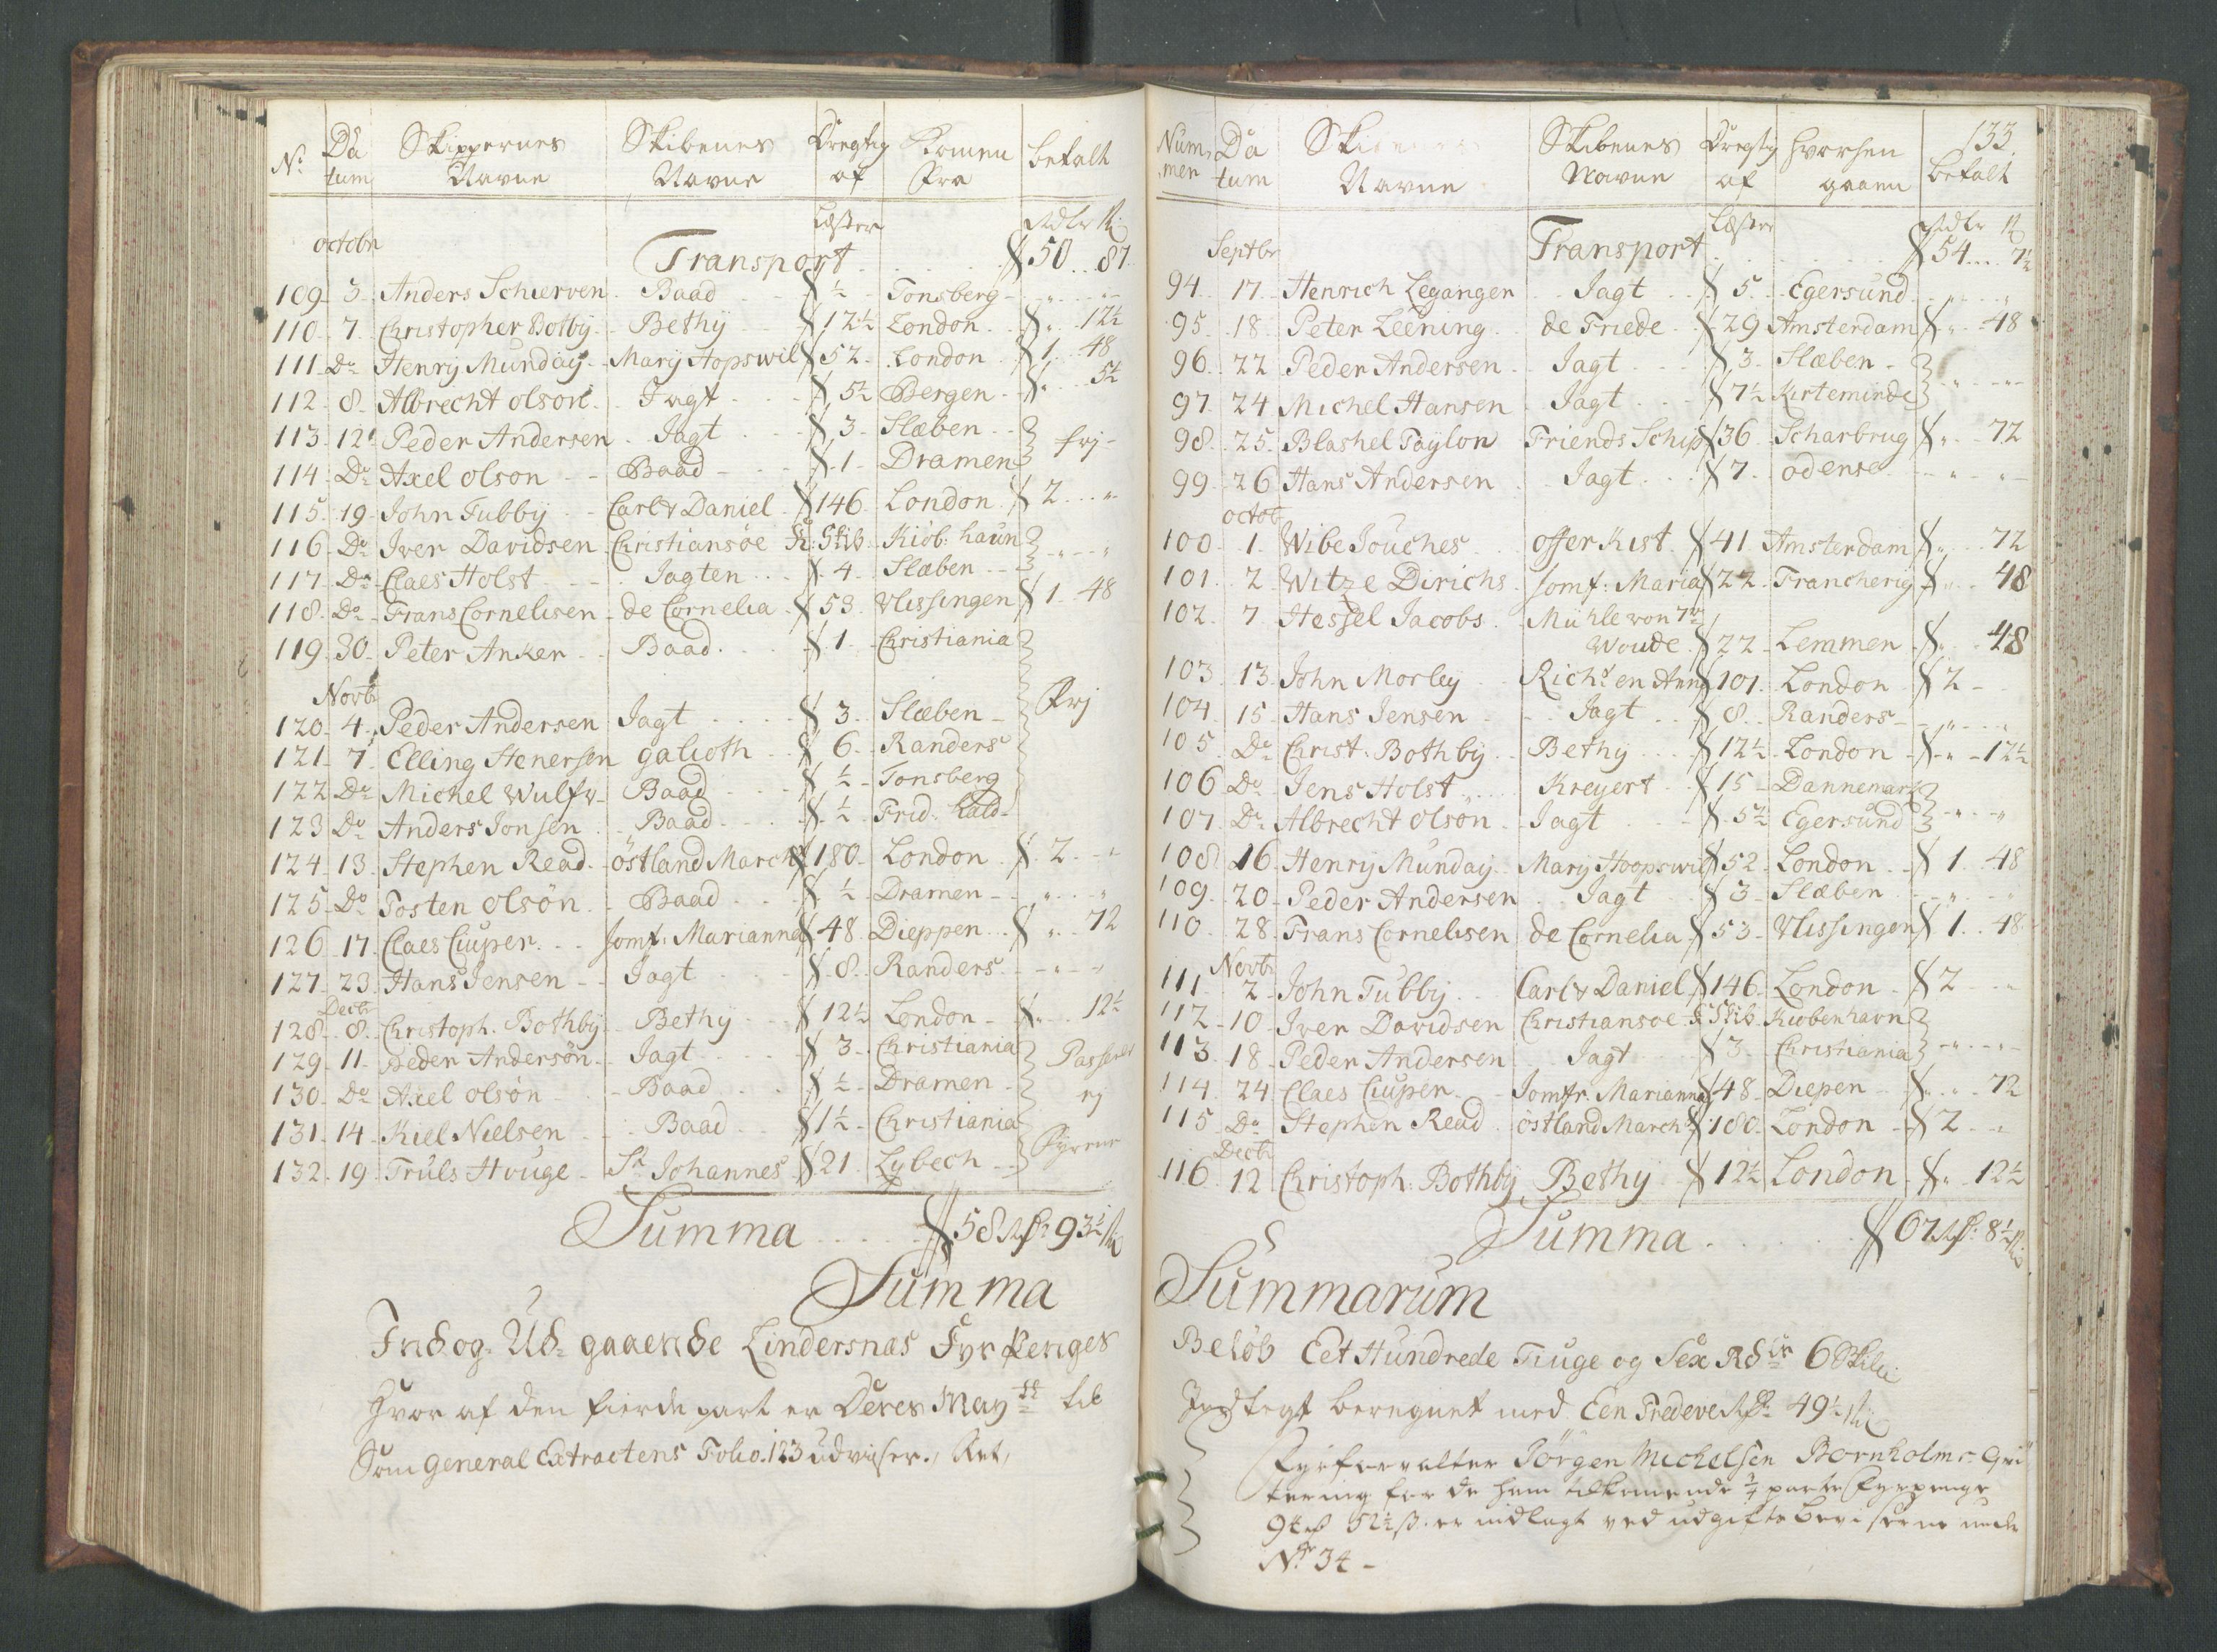 No. Datum Skippernes Navne Skibenes Navne Dregtig af Komen Fra betalt
Læster Rdlr ß
octobr Transport 50 87
109 3 Anders Schierven Baad ½ Tonsberg
110 7 Christopher Botby Bethy 12½ London 12½
111 Do Henry Munday Mary Hopswil 52 London 1 48
112 8 Albrecht olson Jagt 5½ Bergen 5½
113 12 Peder Andersen Jagt 3 Slæben
114 Do Axel olson Baad 1 Dramen frj
115 19 John Tubby Carl & Daniel 146 London 2
116 Do Iver Davidsen Christiansöe K: Skib Kiöb: haun
117 Do Claes Holst Jagten 4 Slæben
118 Do Frans Cornelisen de Cornelia 53 Vlissingen 1 48
119 30 Peter Anker Baad 1 Christiania
Novb
120 4 Peder Andersen Jagt 3 Slæben Frj
121 7 Elling Stenersen galioth 6 Randers
122 Do Michel Wulf Baad ½ Tonsberg
123 Do Anders Jonsen Baad ½ Frid: hald
124 13 Stephen Read östland March 180 London 2
125 Do Tosten olsön Baad ½ Dramen
126 17 Claes Cuper Jomf: Marianna 48 Dieppen 72
127 23 Hans Jensen Jagt 8 Randers
Decbr
128 8 Christoph. Bothby Bethy 12½ London 12½
129 11 Peder Andersön Jagt 3 Christiania Passeret
130 Do Axel olsön Baad ½ Dramen ej
131 14 Kiel Nielsen Baad 1½ Christiania
132 19 Truls Houge St Johannes 21 Lybech Fyrene
Summa 58 Rdr 93½ ß
Summa
Ind og Ud gaaende Lindersnæs Fyr Penges
Hvor af den fierde part er Deres Mayst: til
Som General Extractens Folio. 123 udviser.
133
Nummer Datum Navne Skibenes Navne Dregtig af hvorhen gaaen betalt
Læster Rdlr ß
Septbr Transport 54 7½
94 17 Henrich Legangen Jagt 5 Egersund
95 18 Peter Leening de Friede 29 Amsterdam 48
96 22 Peder Andersen Jagt 3 Slæben
97 24 Michel Hansen Jagt 7½ Kirteminde
98 25 Blashel Taylon Friends Schip 36 Scharbrug 72
99 26 Hans Andersen Jagt 7 odense
octob
100 1 Wibe Jouches offer Kist 41 Amsterdam 72
101 2 Witze Dirichs Jomf: Maria 22 Francherig 48
102 7 Hessel Jacobs Mühle von 7
Woude 22 Lemmen 48
103 13 John Morley Richd en Ann 101 London 2
104 15 Hans Jensen Jagt 8 Randers
105 Do Christ: Bothby Bethy 12½ London 12½
106 Do Jens Holst Kreyert 15 Dannemark
107 Do Albrecht olson Jagt 5½ Egersund
108 16 Henry Munday Mary Hoopswil 52 London 1 48
109 20 Peder Andersen Jagt 3 Slæben
110 28 Frans Cornelisen de Cornelia 53 Vlissingen 1 48
Novb
111 2 John Tubby Carl & Daniel 146 London 2
112 10 Iver Davidsen Christiansoe K: Skib Kiobenhavn
113 18 Peder Andersen Jagt 3 Christiania
114 24 Claes Cuper Jomfr. Marianna 48 Diepen 72
115 Do Stephen Read östland March 180 London 2
Decb
116 12 Christoph: Bothby Bethy 12½ London 12½
Summa 67 Rdr: 8½ ß
Summarum
Belöb Eet Hundrede Tiuge og Sex Rdlr 6 Skill:
beregnet med Een Tredeve Rdr 49½ ß
Fyrforvalter Jörgen Michelsen Bornholms Qvi
tering for de ham tilkomende ¾ parter Fyrpenge
94 rd 52½ ß er indlagt ved udgifts beviserne under
No 34